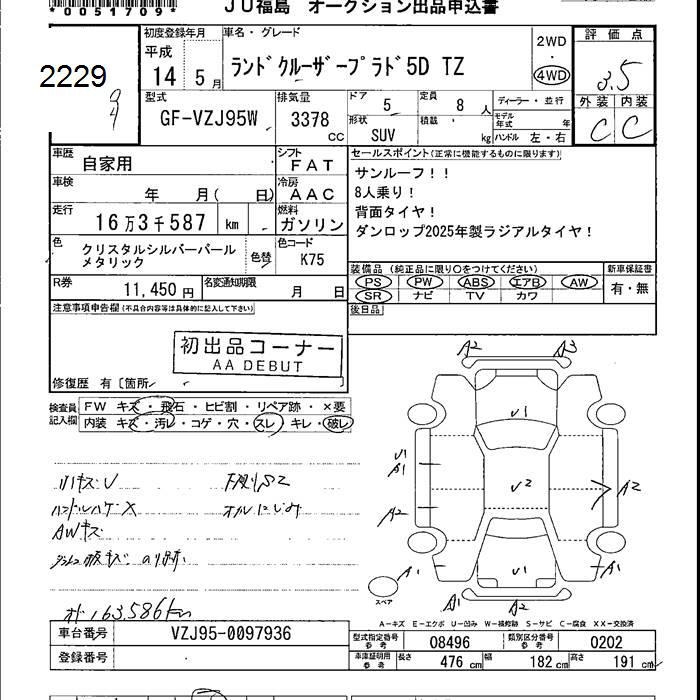 *0051709*
JU福島 オークション出品申込書
2229
初度登録年月
車名・グレード
平成
14 5月
ランドクルーザープラド5D TZ
2WD
・
4WD
評価点
3.5
外装 内装
C C
型式
GF-VZJ95W
排気量
3378
CC
ドア
5
定員
8 人
形状
SUV
積載
kg
ディーラー・並行
モデル年式 年
ハンドル 左・右
車歴
自家用
シフト
FAT
車検
年 月( 日)
冷房
AAC
走行
16万3千587 km
燃料
ガソリン
色
クリスタルシルバーパールメタリック
色替
色コード
K75
R券
11,450 円
名変通知期限
月 日
セールスポイント(正常に機能するものに限ります)
サンルーフ!!
8人乗り!
背面タイヤ!
ダンロップ2025年製ラジアルタイヤ!
装備品(純正品に限り○をつけてください)
PS PW ABS エアB AW
SR ナビ TV カワ
新車保証書
有・無
後日品
注意事項申告欄(不具合内容等は具体的に記入して下さい)
初出品コーナー
AA DEBUT
修復歴 有〔箇所
検査員記入欄
FW キズ・飛石・ヒビ割・リペア跡・×要
内装 キズ・汚レ・コゲ・穴・スレ・キレ・破レ
ハンドルハゲX
AWキズ
163,586km
A2 A3
U1
U1
A1
A2
U2
A2
A1
U1
A1
A1
A2
スペア
A-キズ E-エクボ U-凹み W-補修跡 S-サビ C-腐食 XX-交換済
車台番号
VZJ95-0097936
登録番号
型式指定番号
参考
08496
類別区分番号
参考
0202
車庫証明用
参考
長さ 476 cm
幅 182 cm
高さ 191 cm